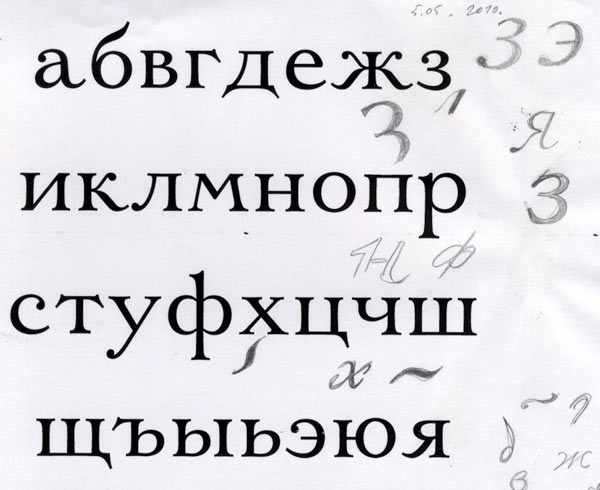 5.05.2010.
абвгдежз З Э
З л Я
иклмнопр З
Ф
стуфхцчш
х
щъыьэюя
ж
в